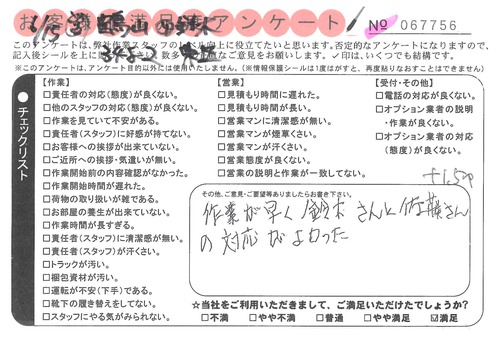 お客様 満足 アンケート
№ 067756
このアンケートは、弊社作業スタッフのレベル向上に役立てたいと思います。否定的なアンケートになりますので、
記入後シールを上に 数多 ご意見をお願いします。✓印は、いくつでも結構です。
※このアンケートは、アンケート目的以外には使用いたしません。(※情報保護シールは1度がすと、再度貼りなおすことはできません)
●チェックリスト
【作業】
□責任者の対応(態度)が良くない。
□他のスタッフの対応(態度)が良くない。
□作業を見ていて不安がある。
□責任者(スタッフ)に好感が持てない。
□お客様への挨拶が出来ていない。
□ご近所への挨拶・気遣いが無い。
□作業開始前の内容確認がなかった。
□作業開始時間が遅れた。
□荷物の取り扱いが雑である。
□お部屋の養生が出来ていない。
□作業時間が長すぎる。
□責任者(スタッフ)に清潔感が無い。
□責任者(スタッフ)が汗くさい。
□トラックが汚い。
□梱包資材が汚い。
□運転が不安(下手)である。
□靴下の履き替えをしてない。
□スタッフにやる気がみられない。
【営業】
□見積もり時間に遅れた。
□見積もり時間が長い。
□営業マンに清潔感が無い。
□営業マンが煙草くさい。
□営業マンが汗くさい。
□営業態度が良くない。
□営業の説明と作業が一致してない。
【受付・その他】
□電話の対応が良くない。
□オプション業者の説明
・作業が良くない。
□オプション業者の対応
(態度)が良くない。
その他、ご意見・ご要望等ありましたらお書き下さい。
作業が早く鈴木さんと佐藤さん
の対応がよかった
☆当社をご利用いただきまして、ご満足いただけたでしょうか?
□不満 □やや不満 □普通 □やや満足 ☑満足